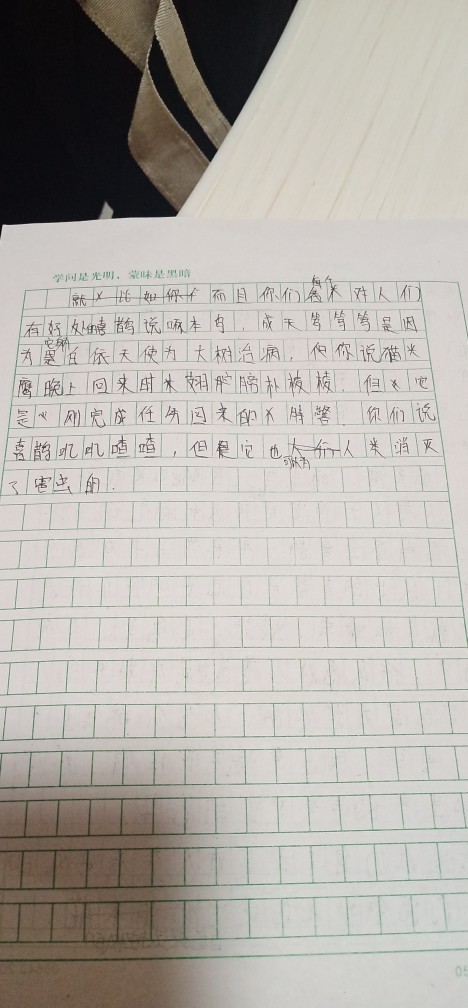 学问是光明，蒙昧是黑暗
而且你们每个 对人们
有好处喜鹊说啄木鸟，成天笃笃笃是因
为它 是在 天使为大树治病，但你说猫头
鹰晚上回来时 翅膀扑棱棱．但 它
是 刚完成任务回来的 警．你们说
喜鹊叽叽喳喳，但是它也可以为人类消灭
了害虫的．